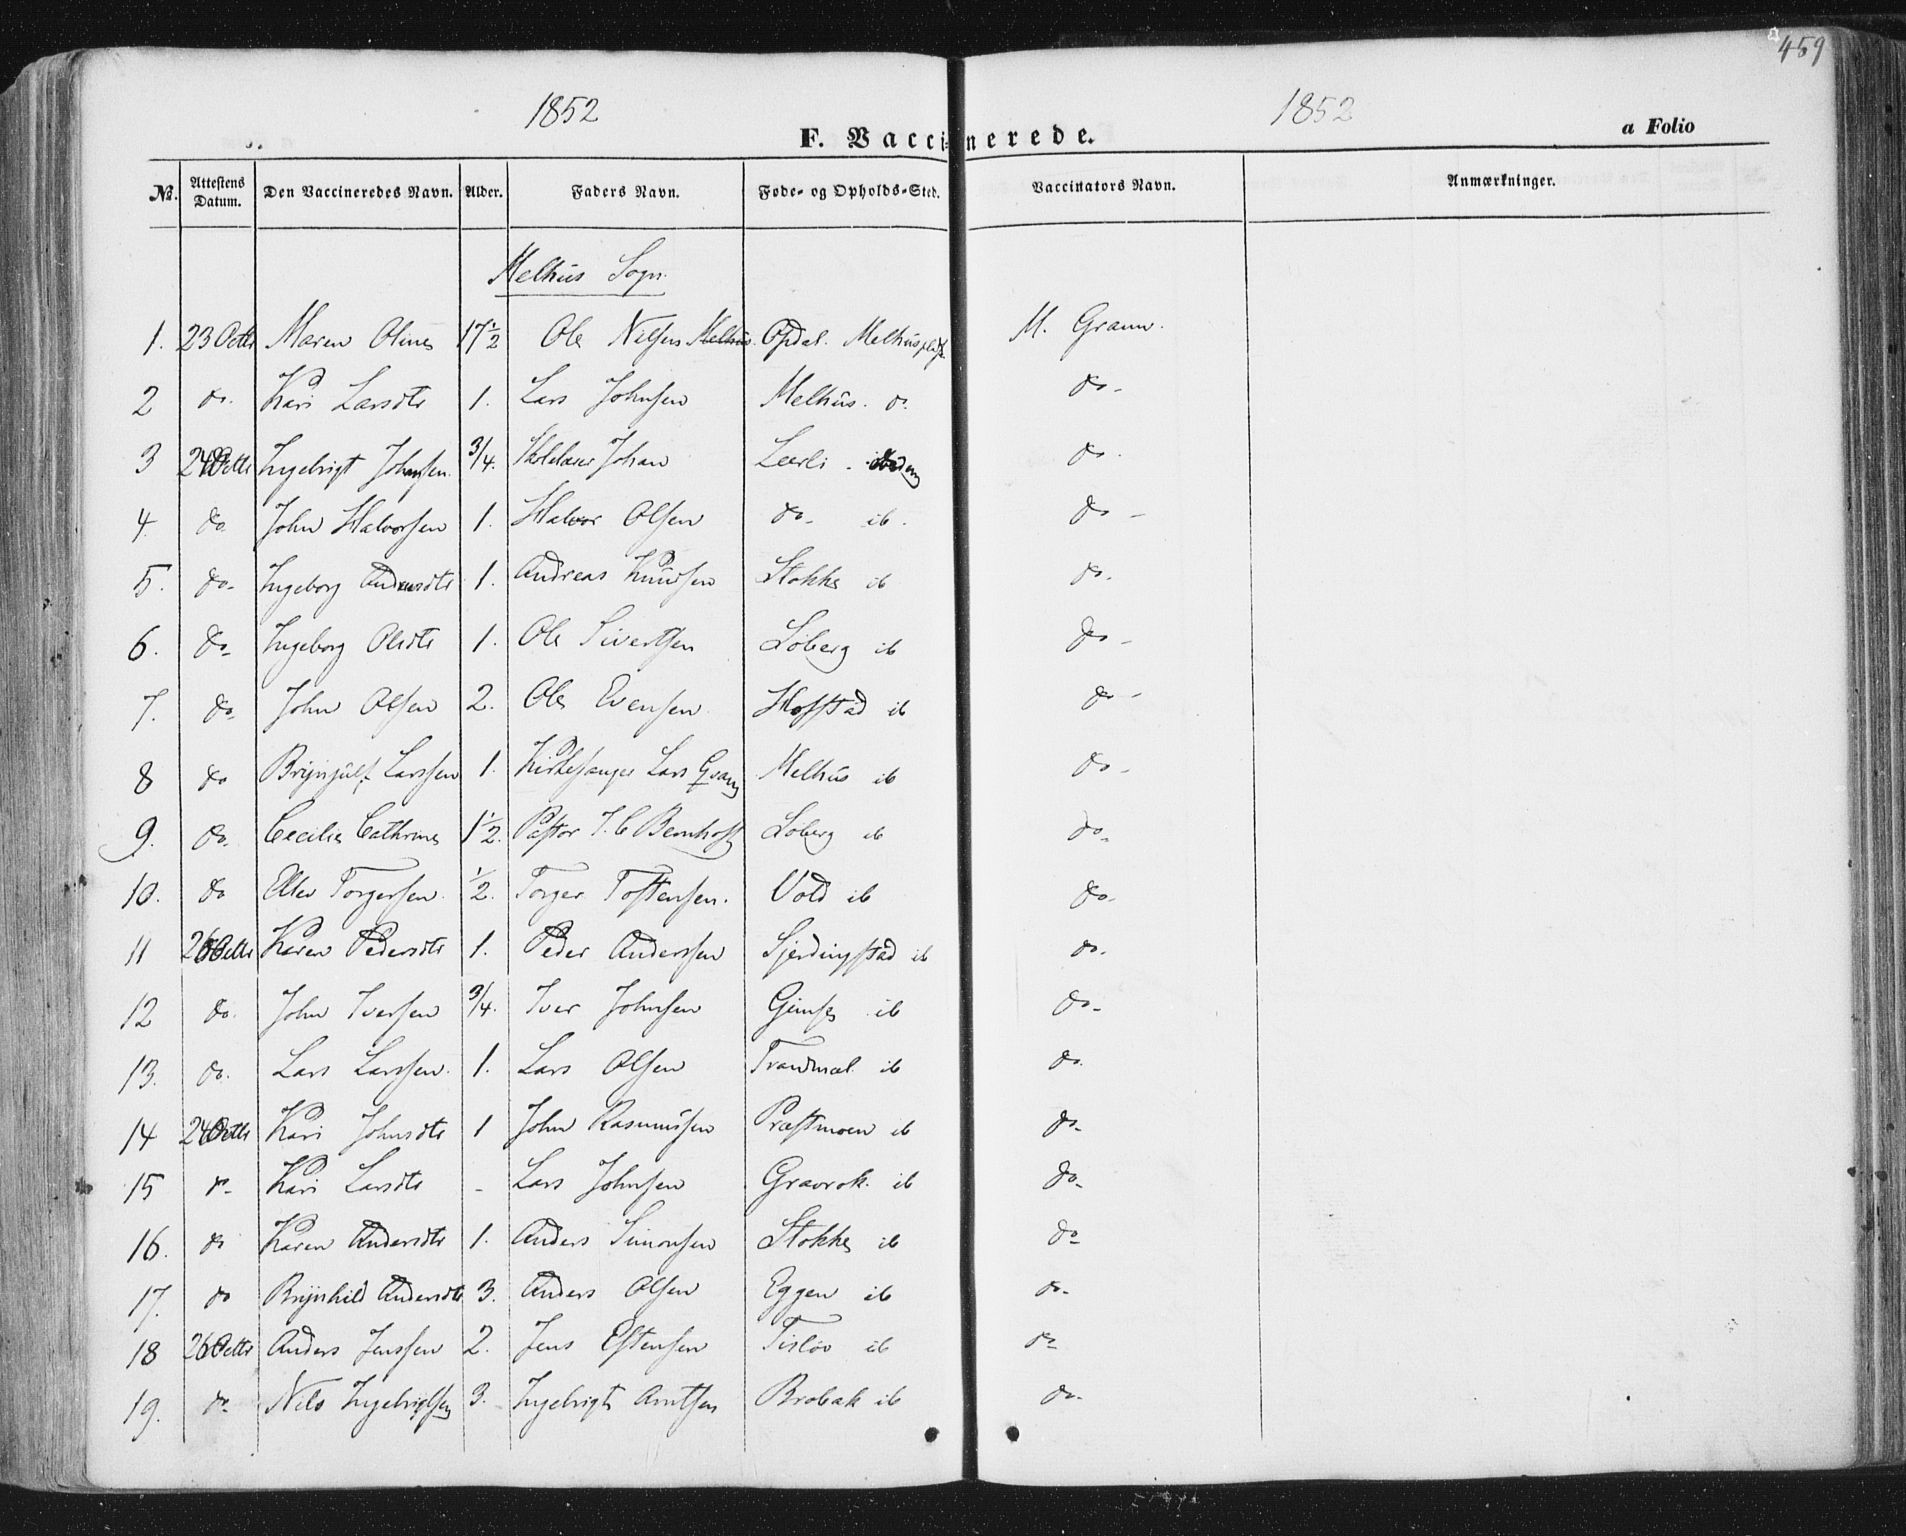 459
1852 1852
F. Vaccinerede. a Folio
No. Attestens Datum. Den Vaccineredes Navn. Alder. Faders Navn. Føde- og Opholds-Sted. Vaccinators Navn. Anmærkninger.
Melhus Sogn.
1. 23 Octbr Maren Oline 17 1/2 Ole Nilsen Melhus. Opdal. Melhusplds. M. Gram.
2 do. Kari Larsdtr 1. Lars Johnsen Melhus. do. do-
3 24 Octbr Ingebrigt Johansen 3/4. Skolelærer Johan Leerli. ibidem do.
4. do. John Halvorsen 1. Halvor Olsen do- ib. do-
5. do- Ingeborg Andreasdtr 1. Andreas Knudsen Stokke ib do.
6. do- Ingeborg Olsdtr 1. Ole Sivertsen Løberg ib do-
7. do- John Olsen 2. Ole Evensen Hofstad ib do-
8 do Brynjulf Larssen 1. Kirkesanger Lars Gsang Melhus ib do-
9. do- Cecilie Cathrine 1 1/2. Pastor J. C Bernhoft Løberg ib do-
10. do Ellev Torgersen. 1/2. Torger Tostensen. Vold ib do-
11 26 Octbr Karen Pedersdtr 1. Peder Anderssen Sjerdingstad ib do.
12 do. John Iversen 3/4. Iver Johnsen Gimse ib do-
13. do. Lars Larssen. 1. Lars Olsen Tranmæl ib do.
14 24 Octbr Kari Johnsdtr 1 John Rasmussen Præstmoen ib do-
15 do- Kari Larsdtr - Lars Johnsen Gravrok. ib do-
16. do Karen Andersdtr 1. Anders Simonsen Stokke ib do-
17. do Brynhild Andersdtr 3. Anders Olsen Eggen ib do-
18 26 Octbr Anders Jenssen 2. Jens Estensen Tisløv ib do-
19. do- Nils Ingebrigtsen 3. Ingebrigt Arntsen Brobak ib do-